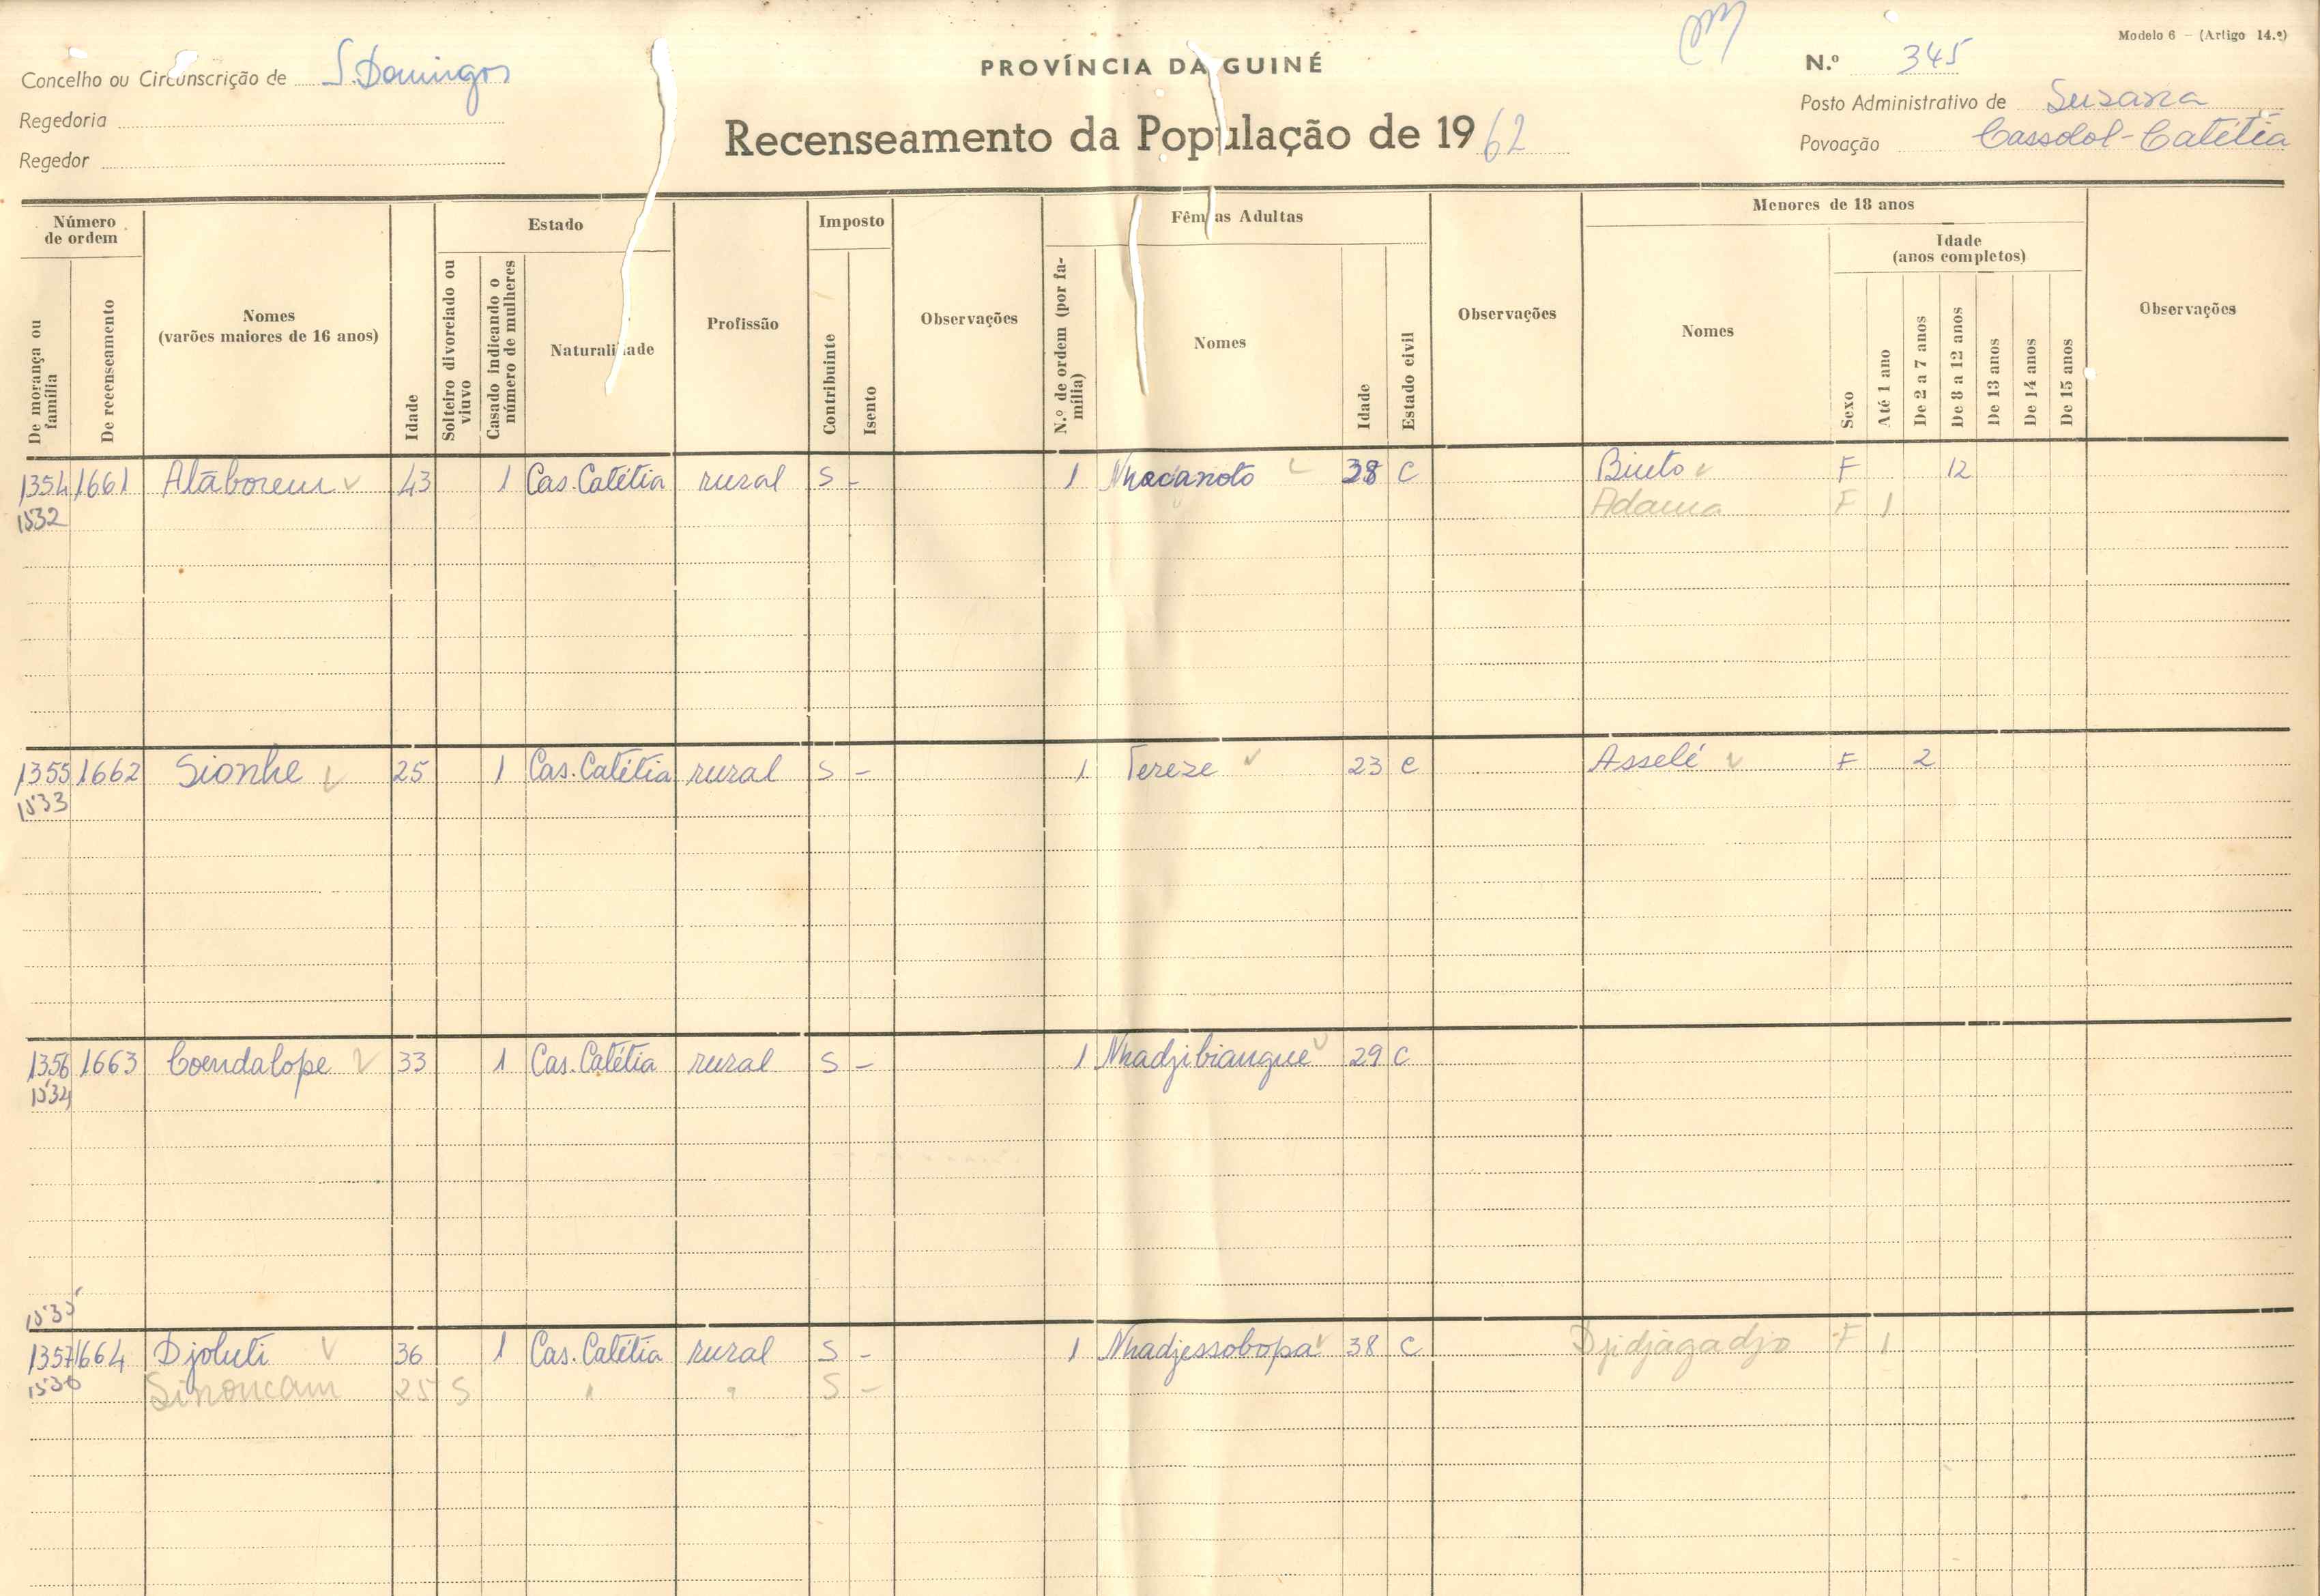 Modelo 6 — (Artigo 14.º)
Concelho ou Circunscrição de S. Domingos
PROVÍNCIA DA GUINÉ
N.º 345
Regedoria
Recenseamento da População de 1962
Posto Administrativo de Suzana
Regedor
Povoação Cassolol-Catétia
Número de ordem
De morança ou família
De recenseamento
Nomes
(varões maiores de 16 anos)
Idade
Estado
Solteiro divorciado ou viuvo
Casado indicando o número de mulheres
Naturalidade
Profissão
Imposto
Contribuinte
Isento
Observações
Fêmeas Adultas
N.º de ordem (por família)
Nomes
Idade
Estado civil
Observações
Menores de 18 anos
Nomes
Sexo
Idade
(anos completos)
Até 1 ano
De 2 a 7 anos
De 8 a 12 anos
De 13 anos
De 14 anos
De 15 anos
Observações
1354 1661 Atāborem 43 1 Cas. Catétia rural S - 1 Nhacanoto 38 C Binto F 12
1532 Adama F 1
1355 1662 Sionhe 25 1 Cas. Catétia rural S - 1 Tereze 23 C Asselé F 2
1533
1356 1663 Coendalope 33 1 Cas. Catétia rural S - 1 Nhadjibiangue 29 C
1534
1535
1357 1664 Djoluti 36 1 Cas. Catétia rural S - 1 Nhadjessobopa 38 C Djidjagadjo F 1
1536 Sinoncam 25 S " " S -